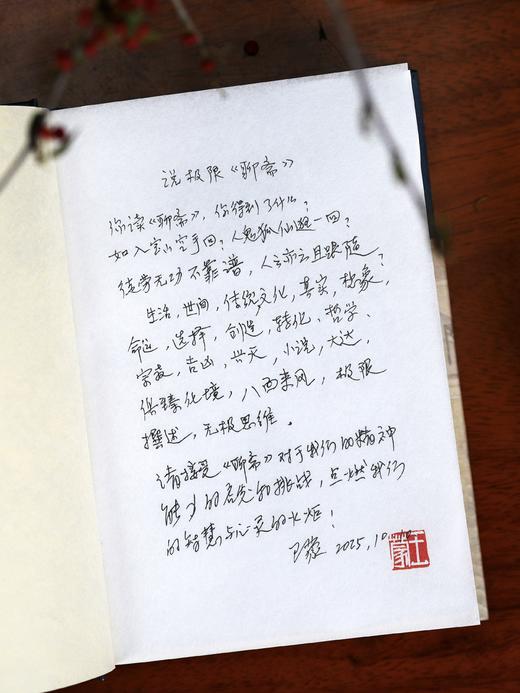 说极限《聊斋》
你读《聊斋》，你得到了什么？
如入宝山空手回？人鬼狐仙逛一回？
徒劳无功不靠谱，人云亦云且跟随，
生活，世间，传统文化，真实，想象，
命运，选择，创造，转化，哲学、
宗教，吉凶，兴灭，小说，大达，
俱臻化境，八面来风，极限
撰述，无极思维。
请接受《聊斋》对于我们的精神
能力的启发和挑战，点燃我们
的智慧与心灵的火炬！
王蒙 2025.10
王蒙